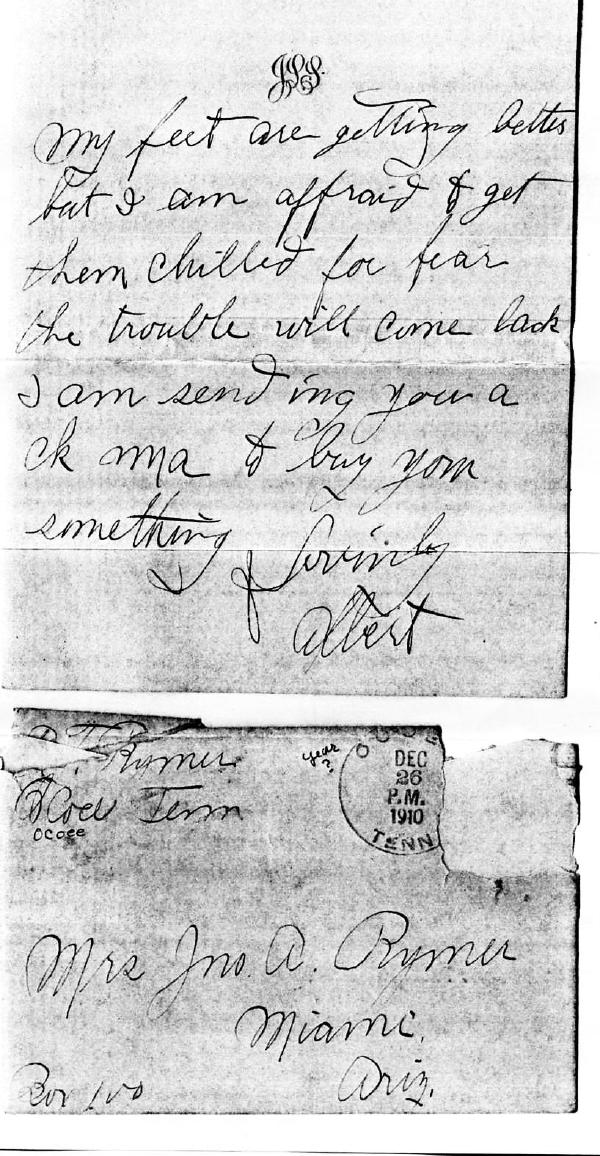 My feet are getting better
but I am affraid to get
them chilled for fear
the trouble will come back
I am send ing you a
ck ma to buy you
something Lovinly
Albert
Rymer
Ocoee Tenn
ocoee
year
?
DEC
26
P.M.
1910
TENN
Mrs Jno. A. Rymer
Miami.
Ariz.
Box